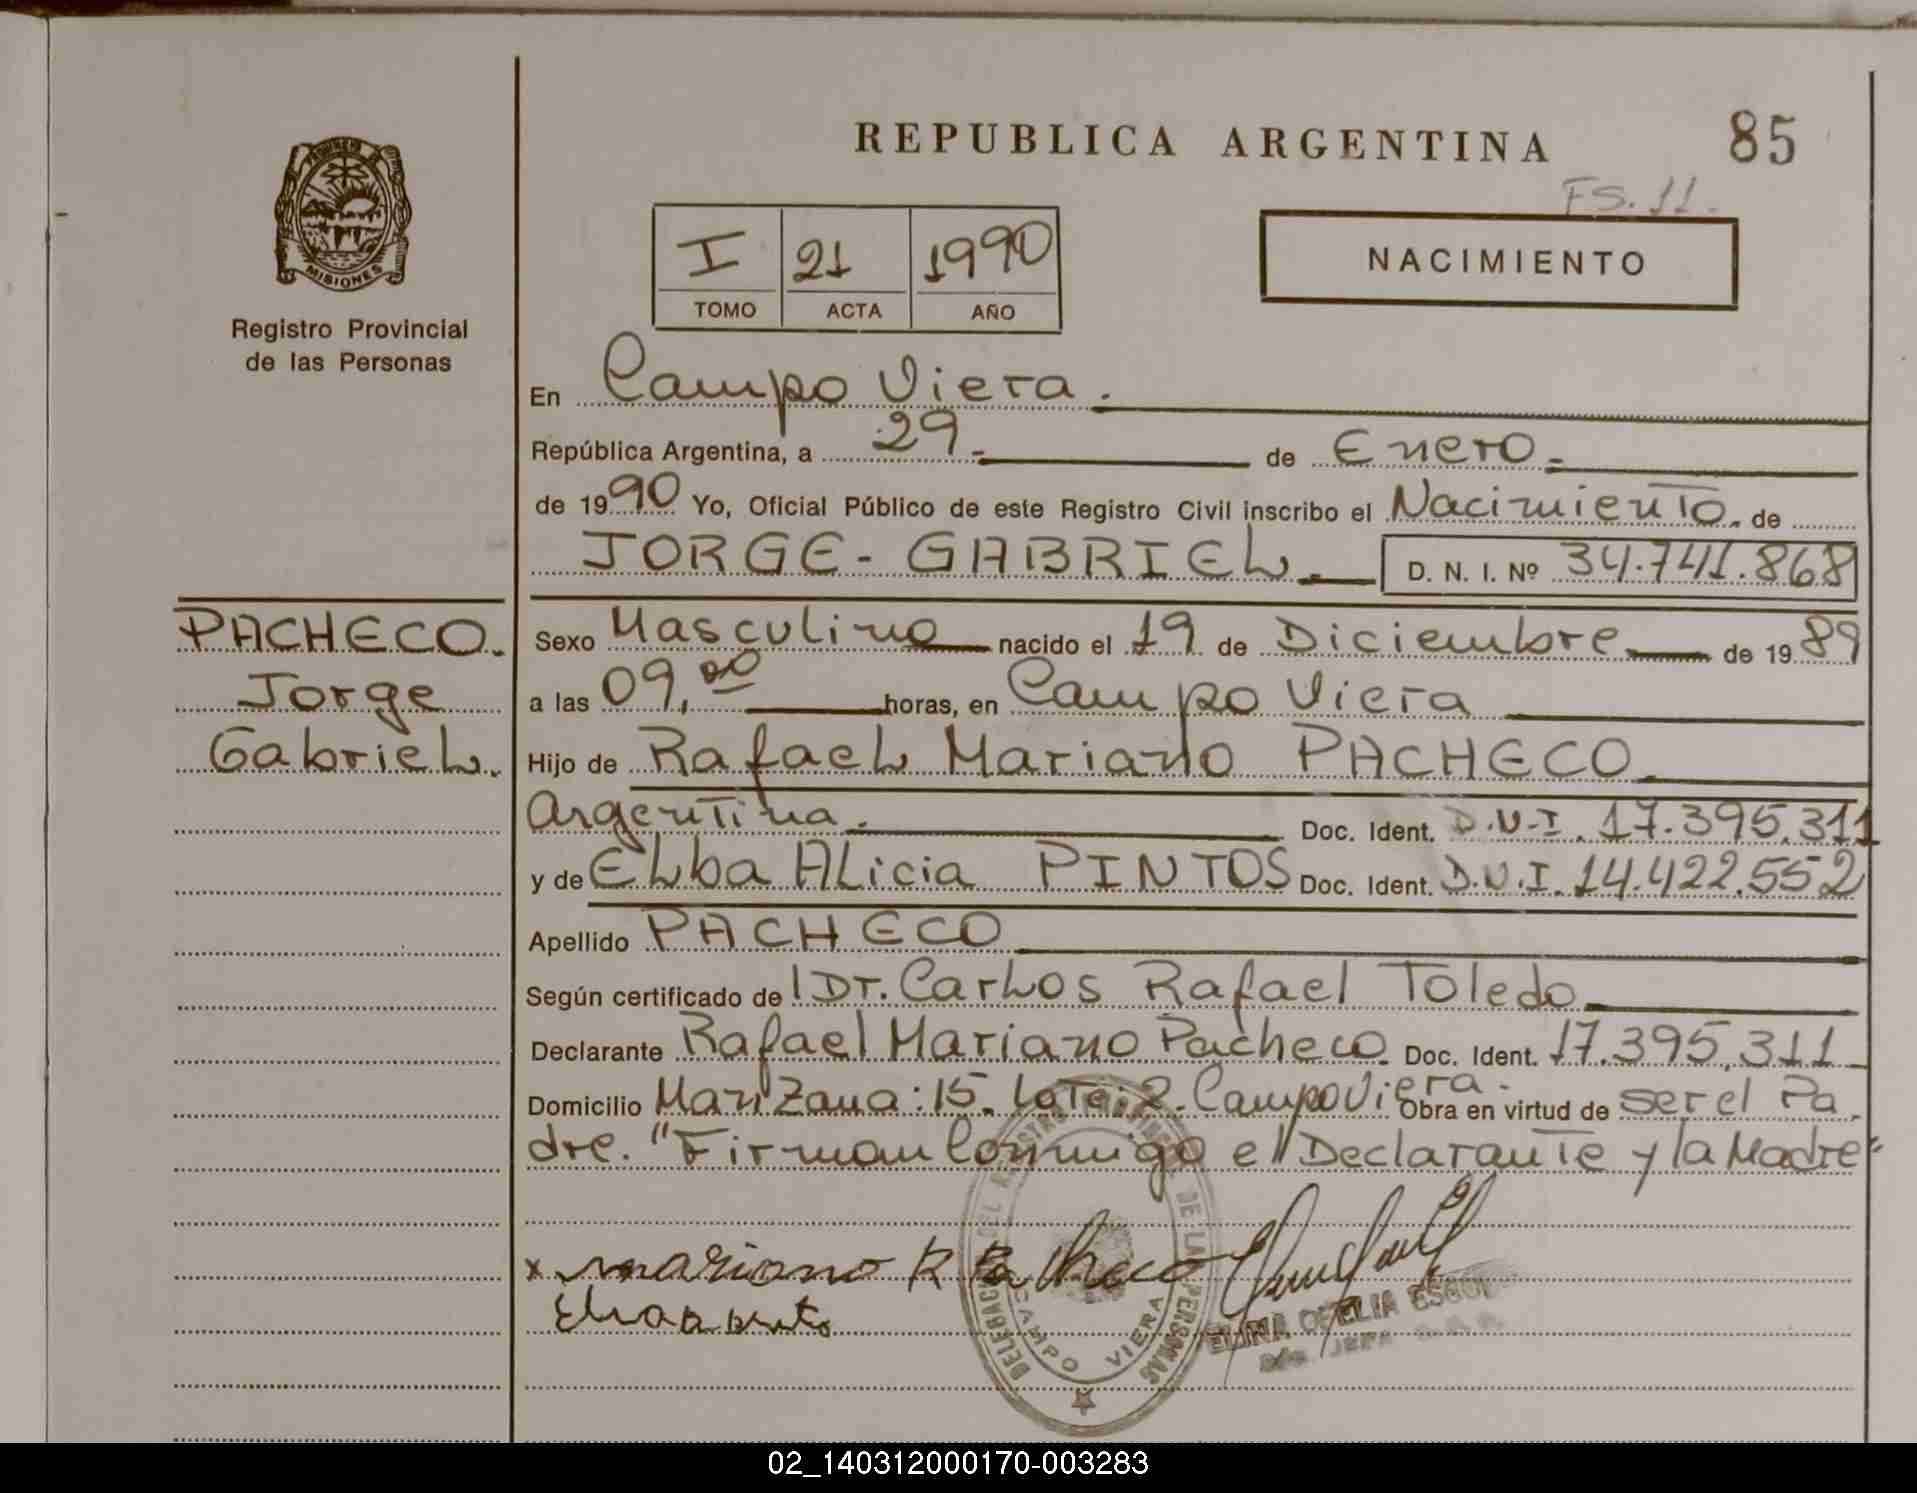 REPUBLICA ARGENTINA
85
FS. 11.
PROVINCIA DE
MISIONES
Registro Provincial
de las Personas
I 21 1990
TOMO ACTA AÑO
NACIMIENTO
En Campo Viera.
República Argentina, a 29 de Enero
de 1990 Yo, Oficial Público de este Registro Civil inscribo el Nacimiento. de
JORGE - GABRIEL. D. N. I. Nº 34.741.868
PACHECO.
Jorge
Gabriel.
Sexo Masculino nacido el 19 de Diciembre de 1989
a las 09,00 horas, en Campo Viera
Hijo de Rafael Mariano PACHECO
Argentina. Doc. Ident. D.N.I. 17.395.311
y de Elba Alicia PINTOS Doc. Ident. D.N.I. 14.422.552
Apellido PACHECO
Según certificado de Dr. Carlos Rafael Toledo
Declarante Rafael Mariano Pacheco Doc. Ident. 17.395.311
Domicilio Manzana: 15. Lote: 2. Campo Viera. Obra en virtud de ser el Pa
dre. "Firman Conmigo el Declarante y la Madre"
x mariano R Pacheco
DE LAS PERSONAS
CAMPO VIERA
ELINA
JEFA
02_140312000170-003283